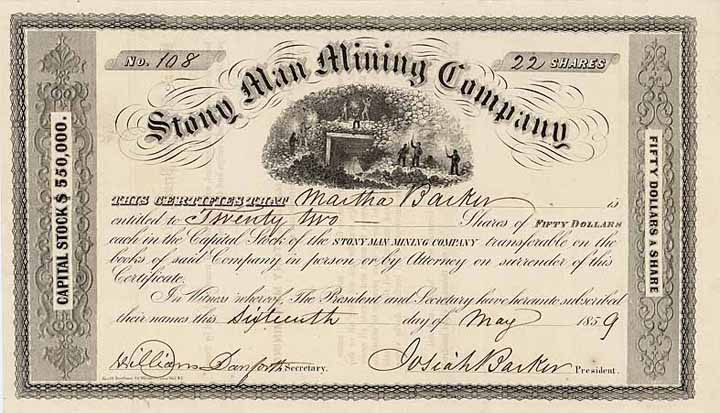 No. 108
22 SHARES
Stony Man Mining Company
CAPITAL STOCK $ 550,000.
FIFTY DOLLARS A SHARE
THIS CERTIFIES THAT Martha Barker is
entitled to Twenty two Shares of FIFTY DOLLARS
each in the Capital Stock of the STONY MAN MINING COMPANY transferable on the
books of said Company in person or by Attorney on surrender of this
Certificate.
In Witness whereof, The President and Secretary have hereunto subscribed
their names this Sixteenth day of May 1859
William Danforth Secretary.
Josiah Barker President.